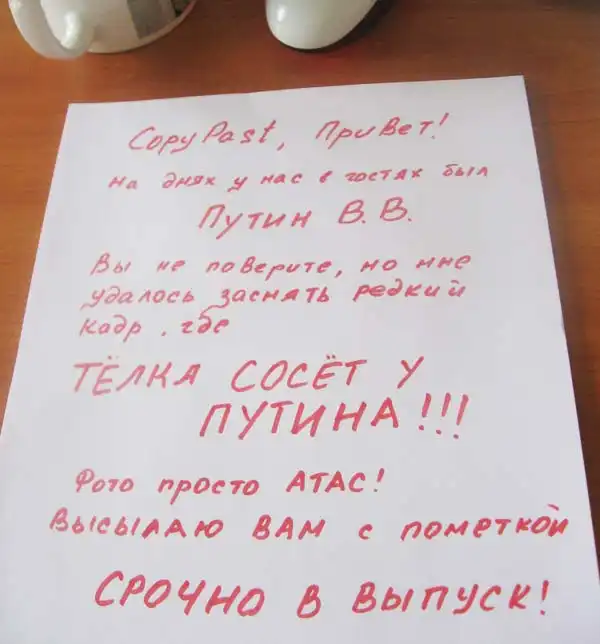 CopyPast, Привет!
На днях у нас в гостях был
Путин В.В.
Вы не поверите, но мне
удалось заснять редкий
кадр, где
ТЁЛКА СОСЁТ У
ПУТИНА!!!
Фото просто АТАС!
Высылаю ВАМ с пометкой
СРОЧНО В ВЫПУСК!